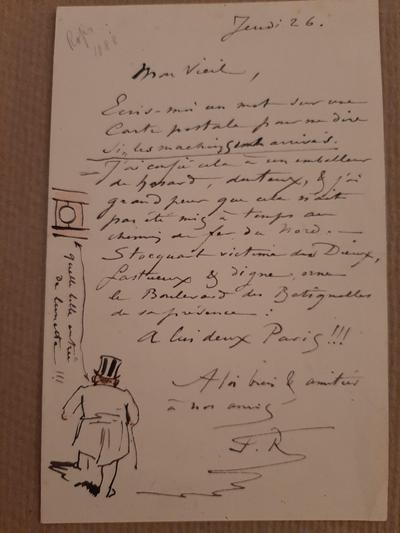 Rops
1888
Jeudi 26.
Mon Vieil,
Ecris-moi un mot sur une
Carte postale pour me dire
Si les machins sont arrivés.
J'ai confié cela à un emballeur
de hasard, douteux, & j'ai
grand peur que cela n'ait
pas été mis à temps au
chemin de fer du Nord. —
Stocquart victime des Dieux,
fastueux & digne, orne
le Boulevard des Batignolles
de sa présence :
A lui deux Paris !!!
A toi bien & amitiés
à nos amis
F. R
quelle belle entrée
de lunette !!!